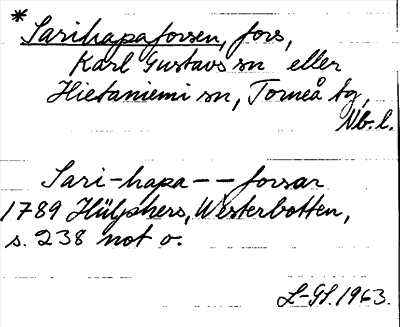 *
Sarihapaforsen, fors,
Karl Gustavs sn eller
Hietaniemi sn, Torneå tg,
Nb. l.
Sari-hapa - - forsar
1789 Hülphers, Westerbotten,
s. 238 not o.
L-GS. 1963.